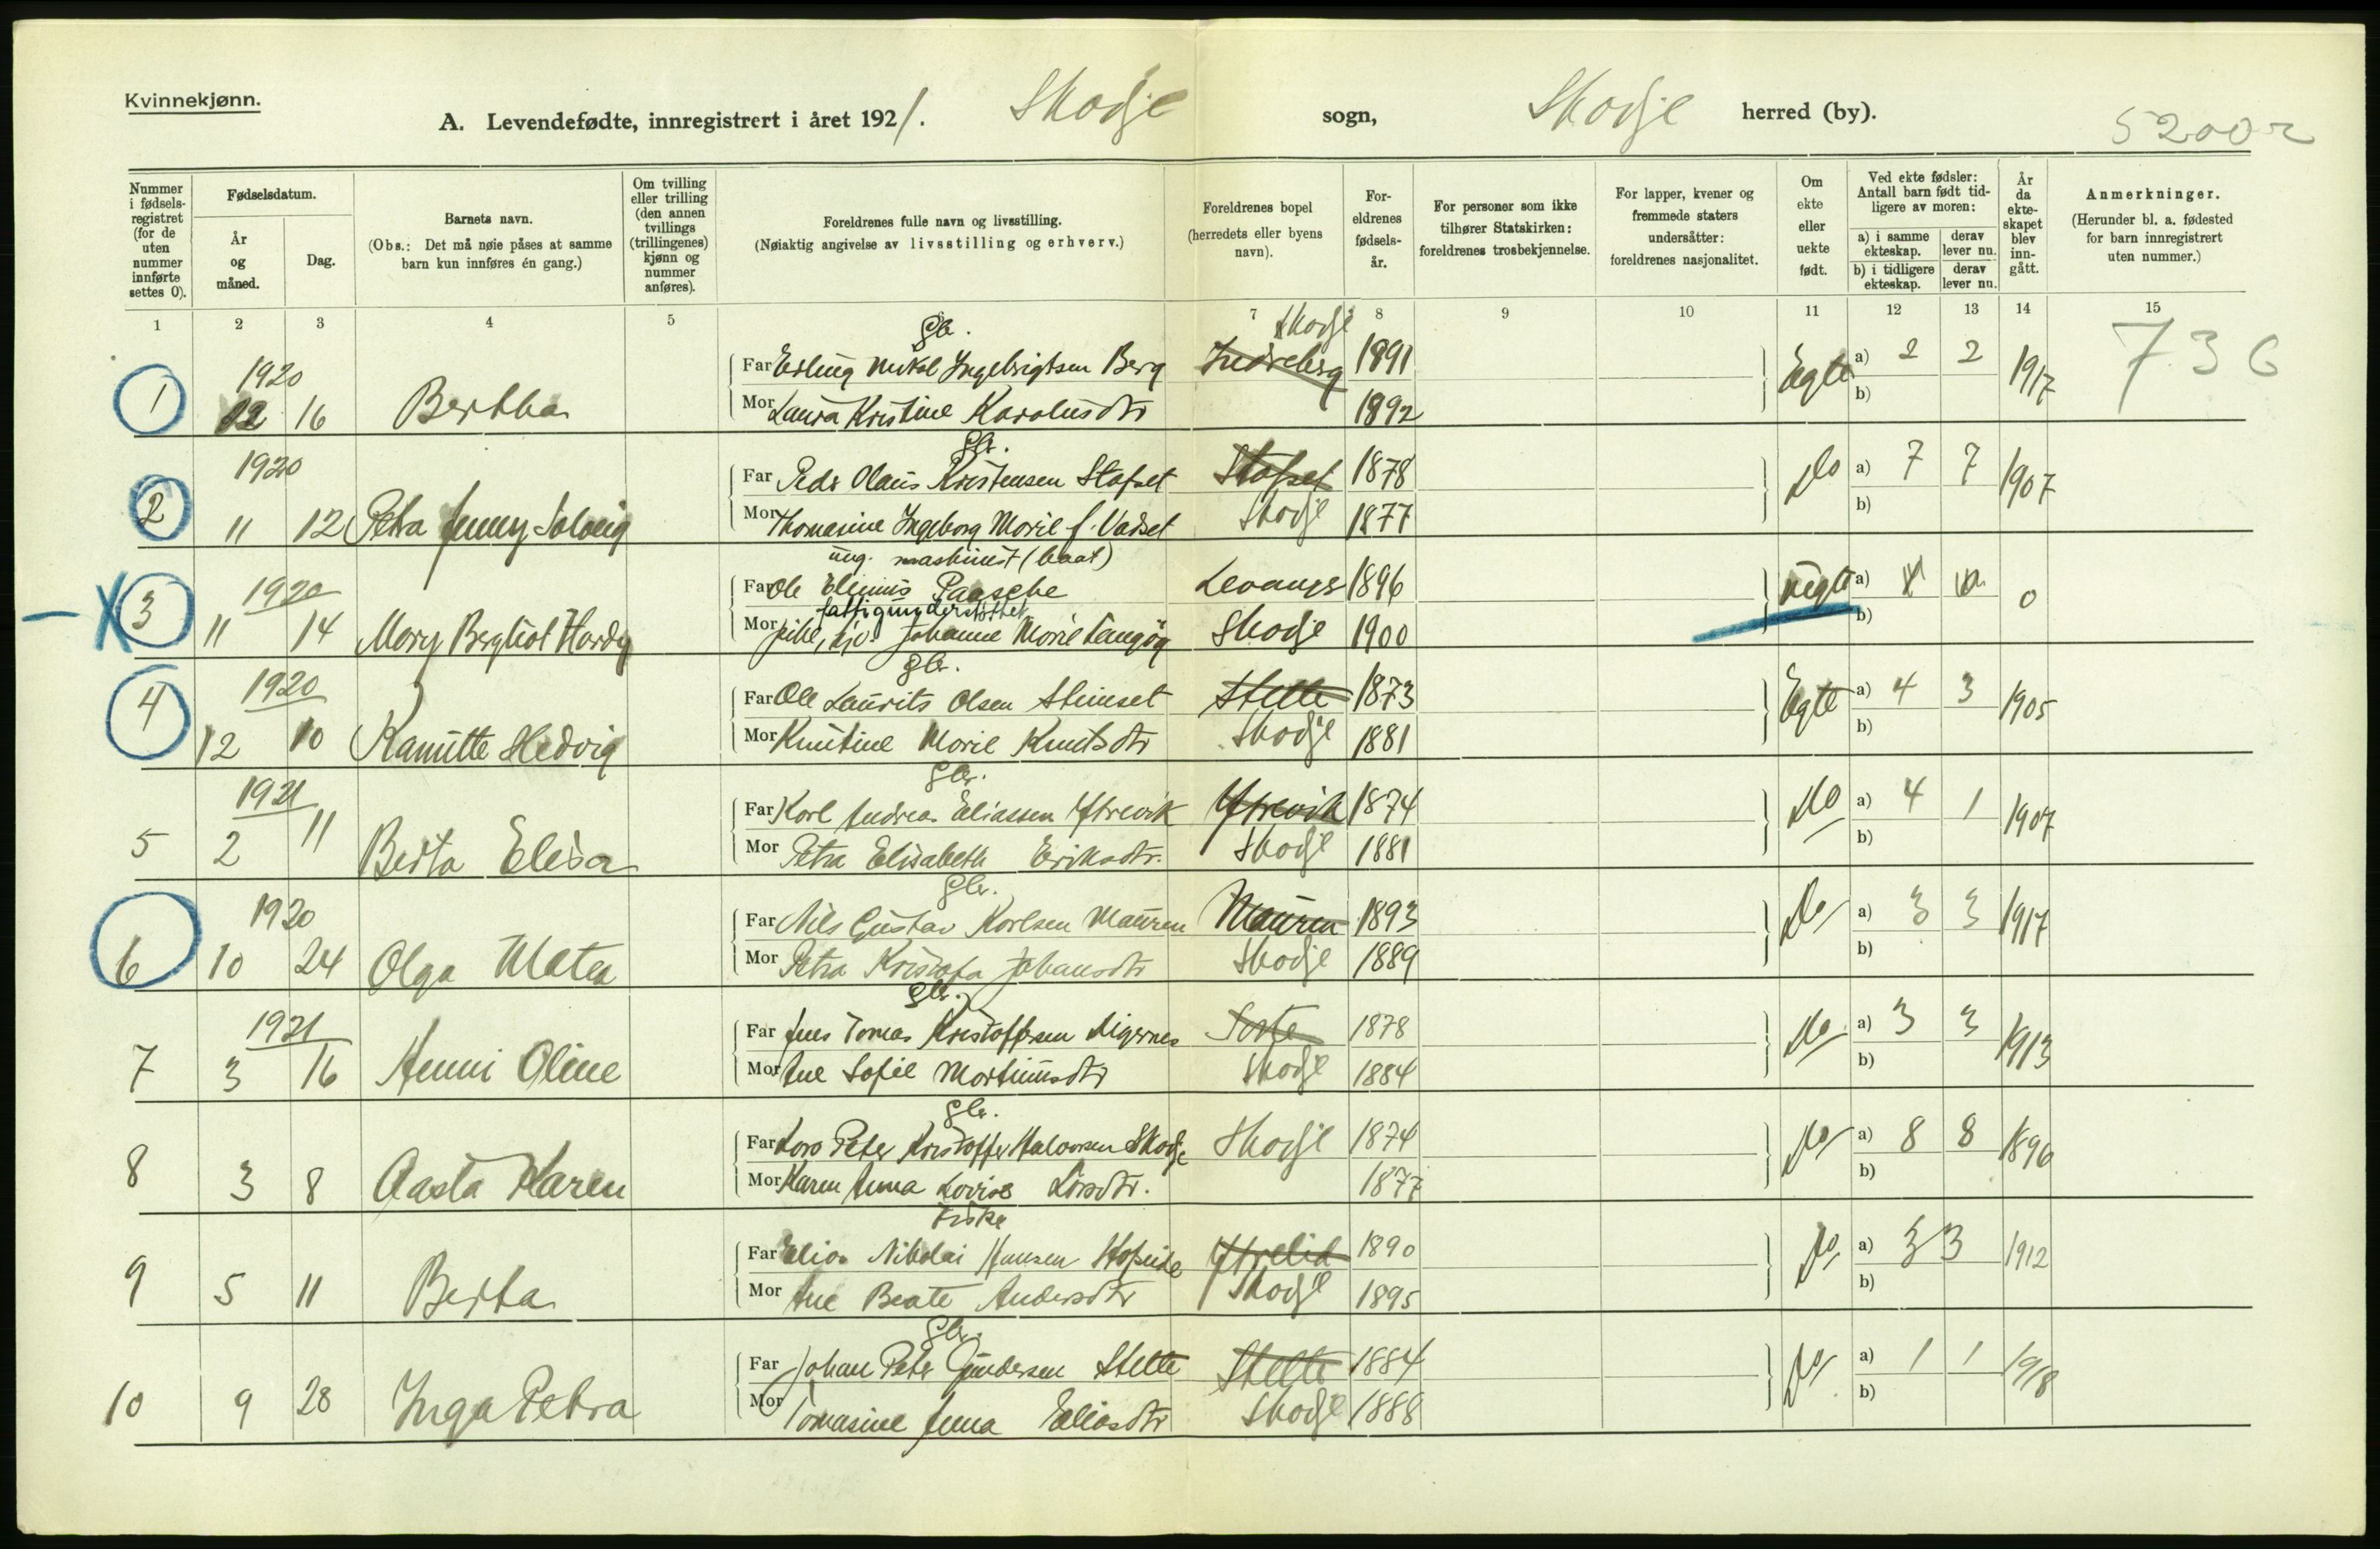 Kvinnekjønn.
A. Levendefødte, innregistrert i året 1921. Skodje sogn, Skodje herred (by). 5200 r
Nummer i fødselsregistret (for de uten nummer innførte settes 0).
Fødselsdatum.
År og måned.
Dag.
Barnets navn.
(Obs.: Det må nøie påses at samme barn kun innføres én gang.)
Om tvilling eller trilling (den annen tvillings (trillingenes) kjønn og nummer anføres).
Foreldrenes fulle navn og livsstilling.
(Nøiaktig angivelse av livsstilling og erhverv.)
Foreldrenes bopel (herredets eller byens navn).
Foreldrenes fødselsår.
For personer som ikke tilhører Statskirken: foreldrenes trosbekjennelse.
For lapper, kvener og fremmede staters undersåtter: foreldrenes nasjonalitet.
Om ekte eller uekte født.
Ved ekte fødsler: Antall barn født tidligere av moren:
a) i samme ekteskap. derav lever nu.
b) i tidligere ekteskap. derav lever nu.
År da ekteskapet blev inngått.
Anmerkninger.
(Herunder bl. a. fødested for barn innregistrert uten nummer.)
1 2 3 4 5 7 8 9 10 11 12 13 14 15
gbr. Skodje
1920 Far Erling Mikal Ingebrigtsen Berg Indreberg 1891 Egte a) 2 2 1917 736
1 12 16 Bertha Mor Laura Kristine Karolusdtr 1892 b)
gbr.
1920 Far Peder Olaus Kristensen Stafset Stafset 1878 do a) 7 7 1907
2 11 12 Petra Jenny Solveig Mor Thomasine Ingeborg Marie f. Vadset Skodje 1877 b)
ung. maskinist (baat)
1920 Far Ole Elenius Paasche Levanger 1896 uegte a) 0
fattigunderstøttet
3 11 14 Mary Bergliot Hardy Mor pike, Johanne Marie Langøy Skodje 1900 b)
gbr.
1920 Far Ole Laurits Olsen Steinset Stette 1873 Egte a) 4 3 1905
4 12 10 Kamitte Hedvig Mor Knutine Marie Knutsdtr Skodje 1881 b)
gbr.
1921 Far Karl Andreas Eliassen Ytrevik Ytrevik 1874 do a) 4 1 1907
5 2 11 Berta Elisa Mor Petra Elisabeth Eriksdtr. Skodje 1881 b)
gbr.
1920 Far Nils Gustav Karlsen Mauren Mauren 1893 do a) 3 3 1917
6 10 24 Olga Matea Mor Petra Kristofa Johansdtr Skodje 1889 b)
gbr.
1921 Far Jens Tomas Kristoffersen Digernes Sorte 1878 do a) 3 3 1913
7 3 16 Henni Oline Mor Ane Sofie Martinusdtr Skodje 1884 b)
gbr.
Far Lars Peter Kristoffer Halvorsen Skodje Skodje 1874 do a) 8 8 1896
8 3 8 Aasta Karen Mor Karen Anna Lovise Larsdtr. 1877 b)
Fisker
Far Elias Nikolai Hansen Hopside Ytrelid 1890 do a) 3 3 1912
9 5 11 Berta Mor Ane Beate Andersdtr Skodje 1895 b)
gbr.
Far Johan Peter Gundersen Stette Stette 1884 do a) 1 1 1918
10 9 28 Inga Petra Mor Tomasine Anna Eliasdtr Skodje 1888 b)